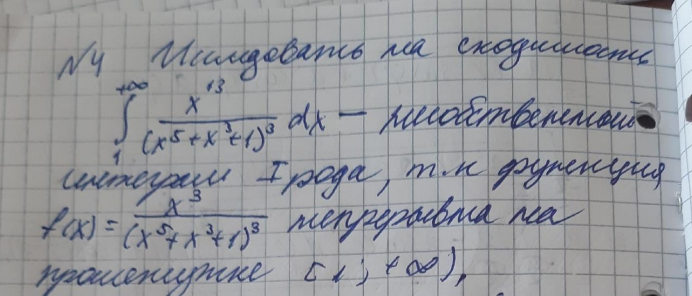 N4 Исследовать на сходимость
+∞
∫ x^13/(x^5+x^3+1)^3 dx — несобственный
1
интеграл I рода, т.к функция
f(x) = x^3/(x^5+x^3+1)^3 непрерывна на
промежутке [1; +∞),